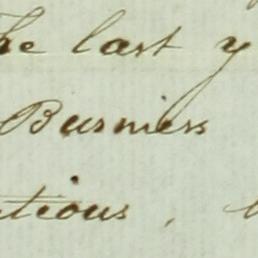 he last y
Business
tious,